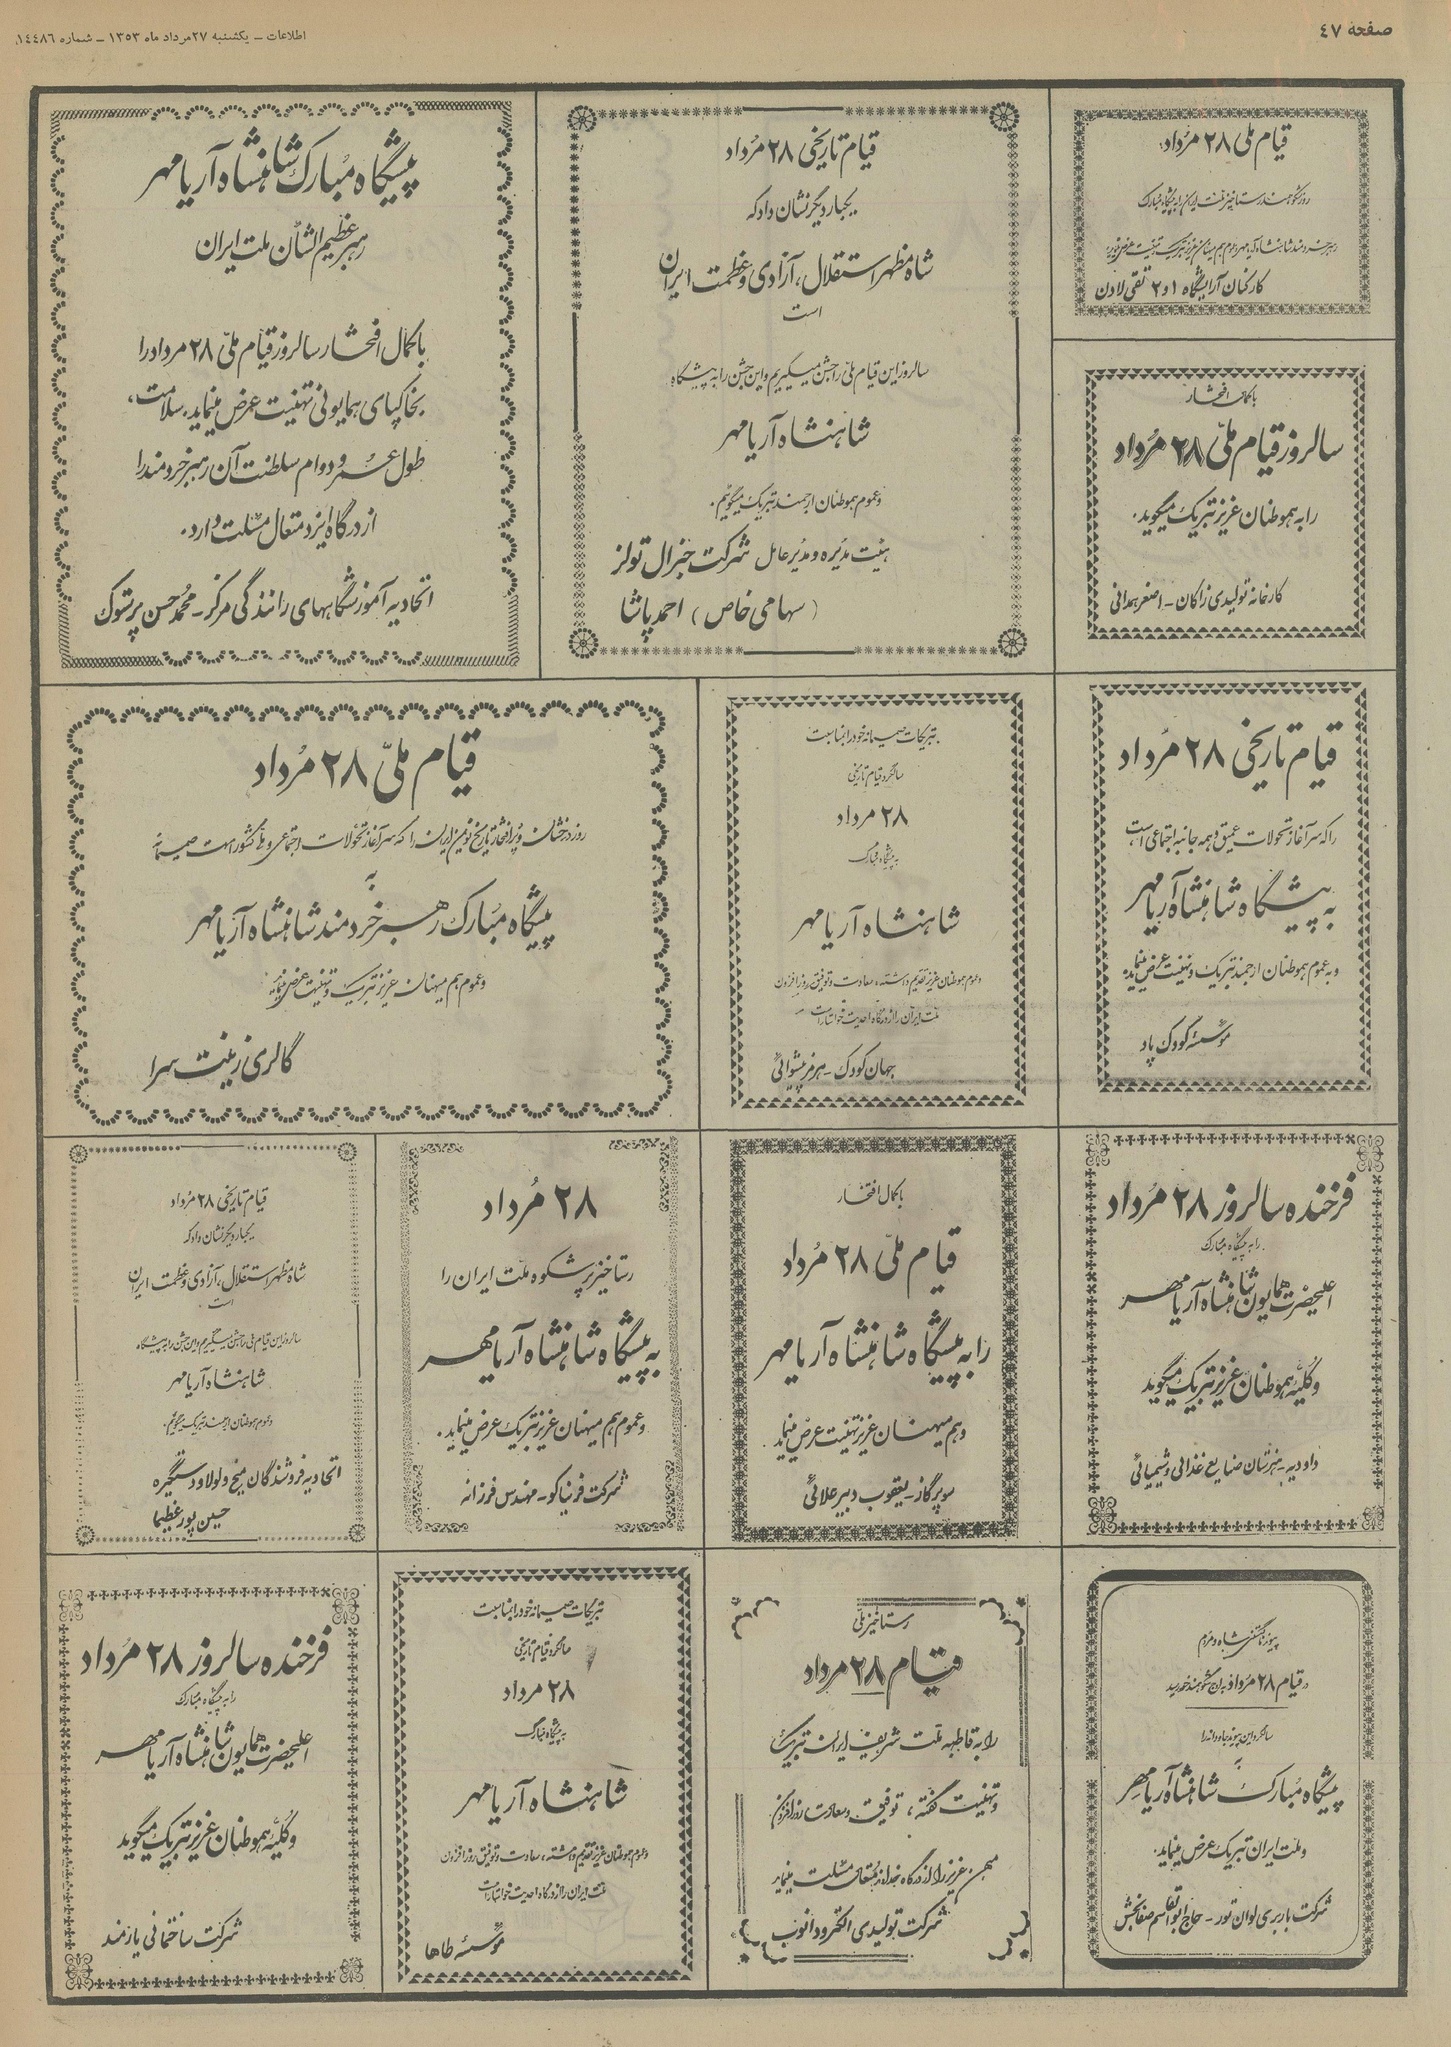 صفحه ٤٧
اطلاعات – یکشنبه ٢٧ مرداد ماه ١٣٥٣ – شماره ١٤٤٨٦
قیام ملی ۲۸ مرداد
کارکنان آرایشگاه ۱ و ۲ تقی لادن
با کمال افتخار
سالروز قیام ملی ۲۸ مرداد
را به هموطنان عزیز تبریک میگوید.
کارخانه تولیدی زاکان - اصغر همدانی
قیام تاریخی ۲۸ مرداد
یکبار دیگر نشان داد که
شاه مظهر استقلال، آزادی و عظمت ایران
است
سالروز این قیام ملی را جشن میگیریم و این جشن را به پیشگاه
شاهنشاه آریامهر
و عموم هموطنان ارجمند تبریک میگوئیم.
هیئت مدیره و مدیر عامل شرکت جنرال تولز
(سهامی خاص) احمد پاشا
پیشگاه مبارک شاهنشاه آریامهر
رهبر عظیم الشأن ملت ایران
با کمال افتخار سالروز قیام ملی ۲۸ مرداد را
بخاکپای همایونی تهنیت عرض مینماید. سلامت،
طول عمر و دوام سلطنت آن رهبر خردمند را
از درگاه ایزد متعال مسئلت دارد.
اتحادیه آموزشگاههای رانندگی مرکز - محمد حسن پرتوک
قیام تاریخی ۲۸ مرداد
را که سرآغاز تحولات عمیق و همه جانبه اجتماعی است
به پیشگاه شاهنشاه آریامهر
و به عموم هموطنان ارجمند تبریک و تهنیت عرض مینماید.
موسسه کودک پاد
تبریکات صمیمانه خود را بمناسبت
سالگرد قیام تاریخی
۲۸ مرداد
به پیشگاه مبارک
شاهنشاه آریامهر
و عموم هموطنان عزیز تقدیم داشته، سعادت و توفیق روز افزون
ملت ایران را از درگاه احدیت خواستار است
جهان کودک - هرمز پیشوائی
قیام ملی ۲۸ مرداد
روز درخشان و پر افتخار تاریخ نوین ایران را که سرآغاز تحولات اجتماعی و ملی کشور است صمیمانه
به
پیشگاه مبارک رهبر خردمند شاهنشاه آریامهر
و عموم هم میهنان عزیز تبریک و تهنیت عرض مینماید
گالری زینت سرا
فرخنده سالروز ۲۸ مرداد
را به پیشگاه مبارک
اعلیحضرت همایون شاهنشاه آریامهر
و کلیه هموطنان عزیز تبریک میگوید
داودیه - هنرستان صنایع غذائی و شیمیائی
با کمال افتخار
قیام ملی ۲۸ مرداد
را به پیشگاه شاهنشاه آریامهر
و هم میهنان عزیز تهنیت عرض مینماید.
سوپر گاز - یعقوب دبیر علائی
۲۸ مرداد
رستاخیز پرشکوه ملت ایران را
به پیشگاه شاهنشاه آریامهر
و عموم هم میهنان عزیز تبریک عرض مینماید.
شرکت فونیاکو - مهندس فرزانه
قیام تاریخی ۲۸ مرداد
یکبار دیگر نشان داد که
شاه مظهر استقلال، آزادی و عظمت ایران
است
سالروز این قیام ملی را جشن میگیریم و این جشن را به پیشگاه
شاهنشاه آریامهر
و عموم هموطنان ارجمند تبریک میگوئیم.
اتحادیه فروشندگان میخ و لولا و دستگیره
حسین پور عظیما
پیوند ناگسستنی شاه و مردم
در قیام ۲۸ مرداد به اوج شکوهمند خود رسید
سالگرد این پیوند جاودانه را
به
پیشگاه مبارک شاهنشاه آریامهر
و ملت ایران تبریک عرض مینماید.
شرکت باربری لوان تور - حاج ابوالقاسم صفابخش
رستاخیز ملی
قیام ۲۸ مرداد
را به قاطبه ملت شریف ایران تبریک
و تهنیت گفته، توفیق و سعادت روز افزون
میهن عزیز را از درگاه خداوند متعال مسئلت مینماید
شرکت تولیدی الکترود انوب
تبریکات صمیمانه خود را بمناسبت
سالگرد قیام تاریخی
۲۸ مرداد
به پیشگاه مبارک
شاهنشاه آریامهر
و عموم هموطنان عزیز تقدیم داشته، سعادت و توفیق روز افزون
ملت ایران را از درگاه احدیت خواستار است
موسسه طاها
فرخنده سالروز ۲۸ مرداد
را به پیشگاه مبارک
اعلیحضرت همایون شاهنشاه آریامهر
و کلیه هموطنان عزیز تبریک میگوید
شرکت ساختمانی یازمند